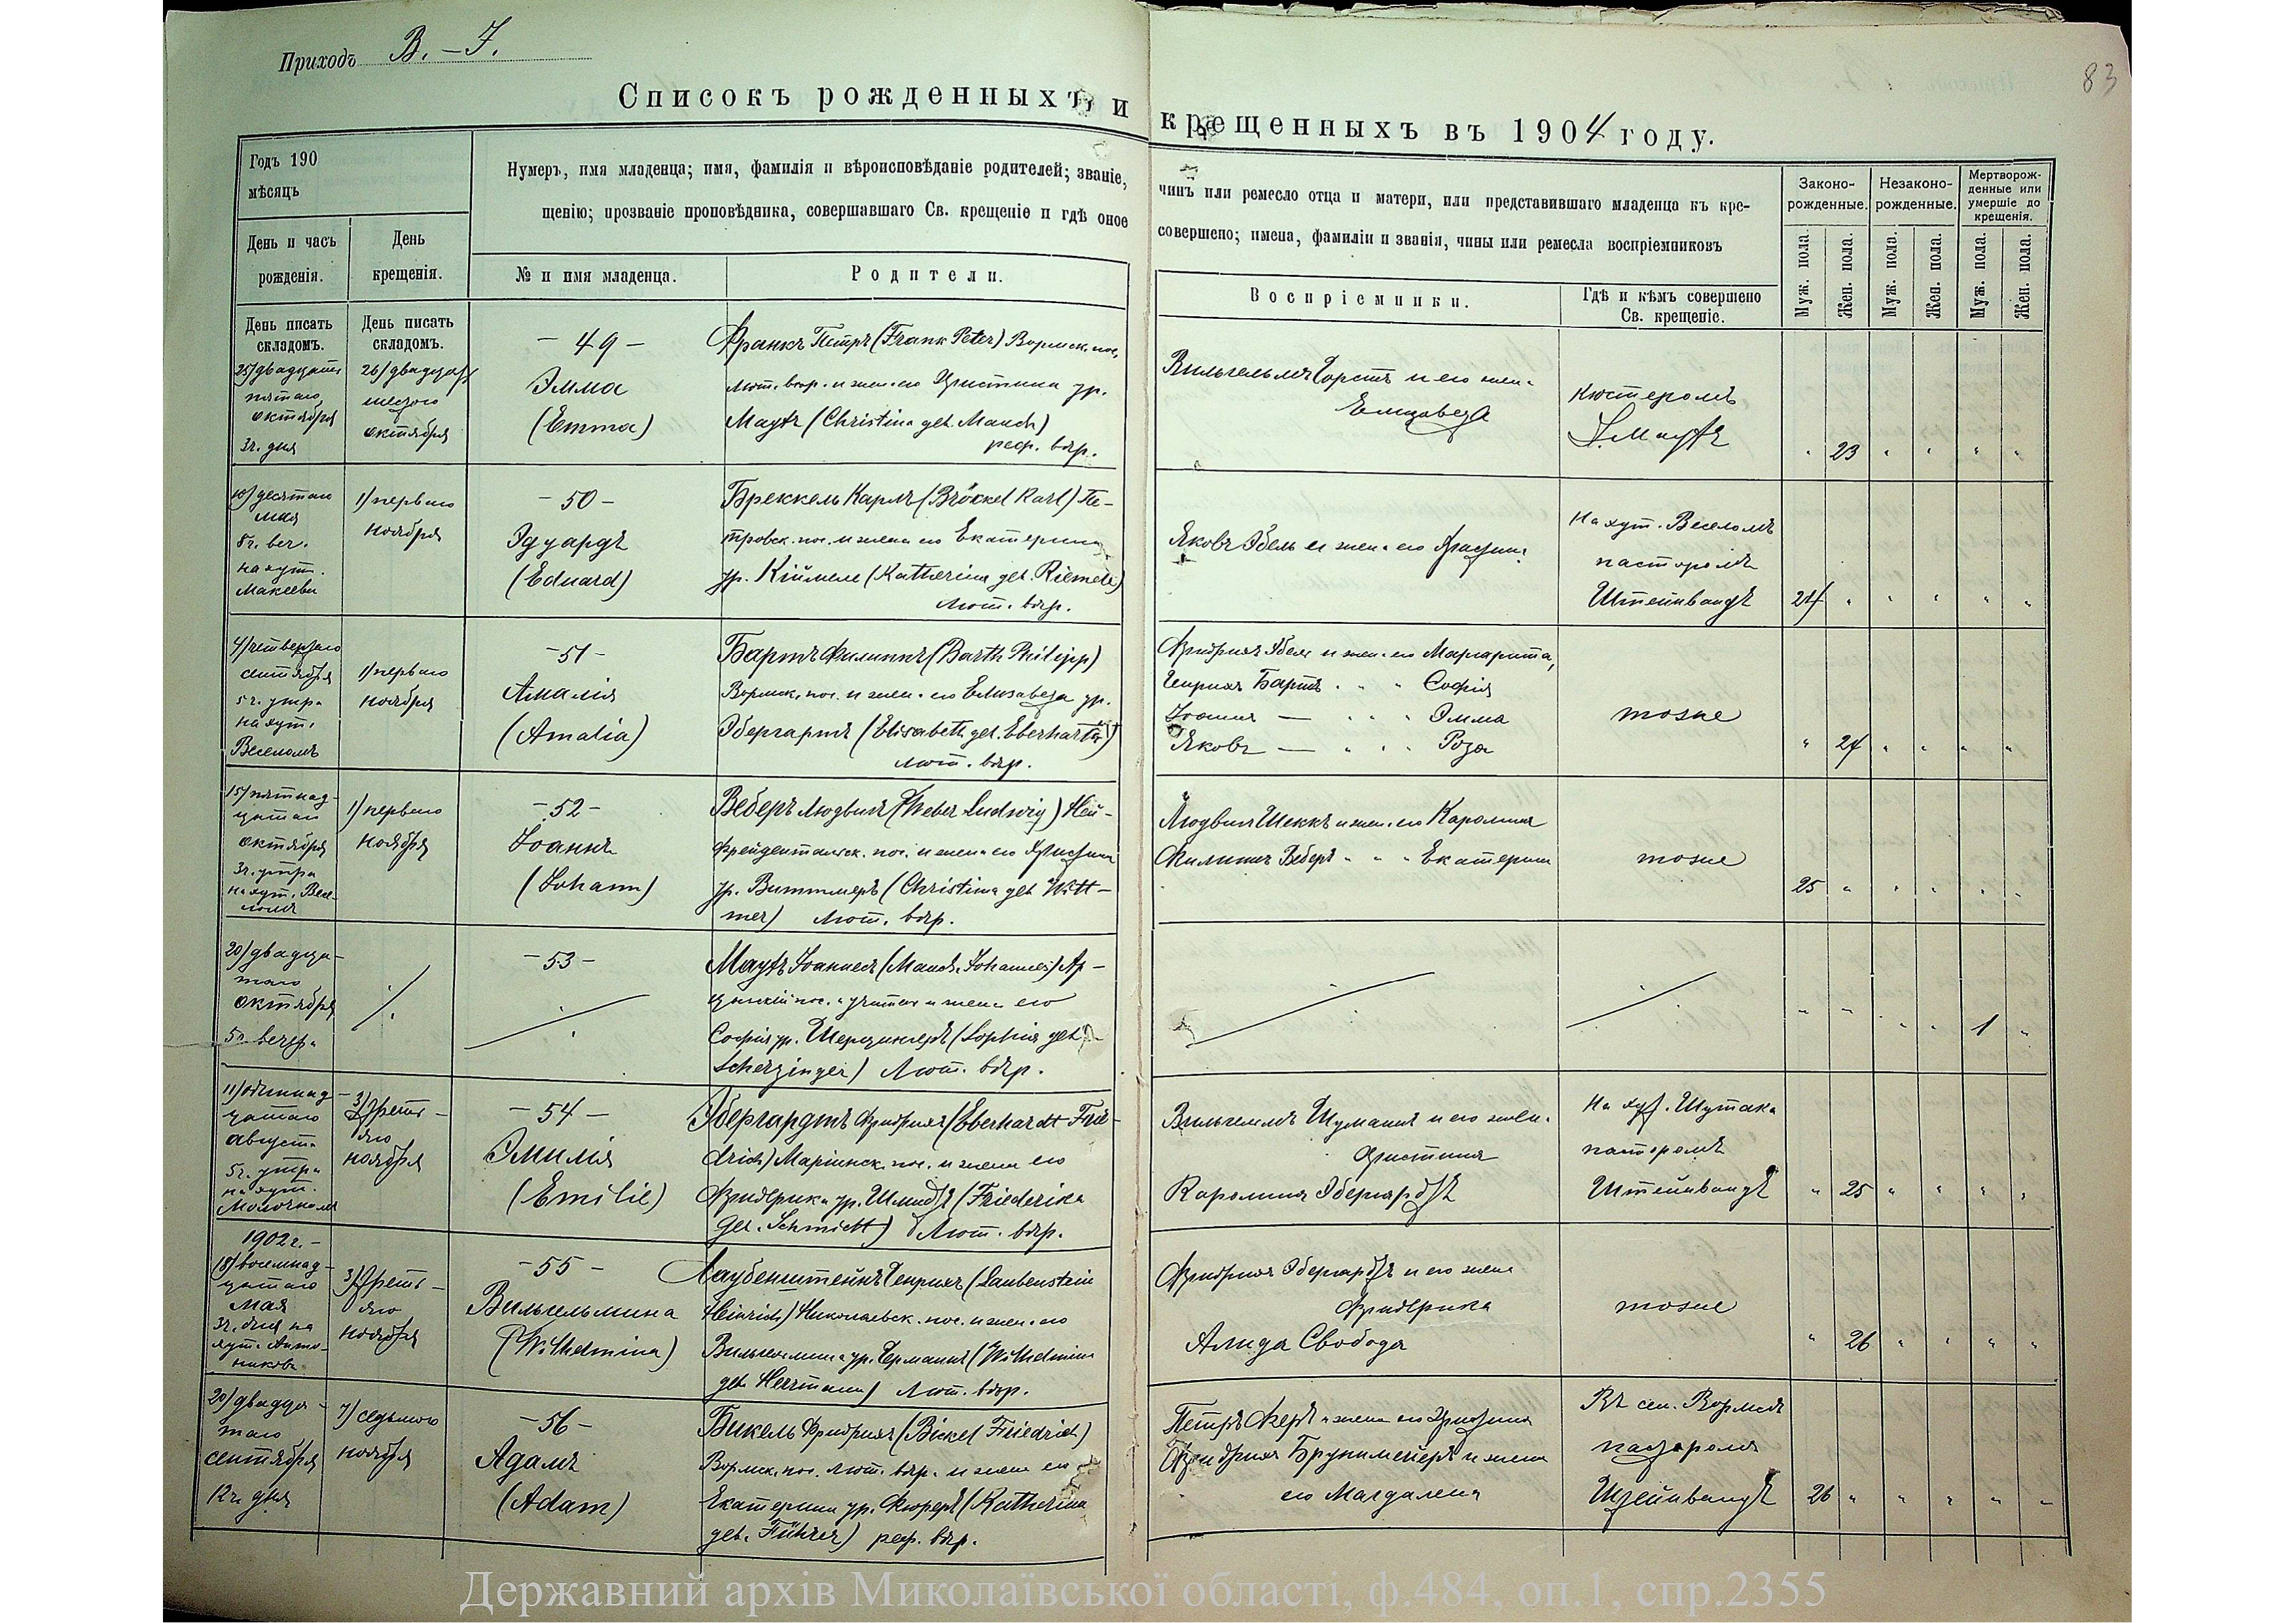 Приходъ В.-І.
83
Списокъ рожденныхъ и крещенныхъ въ 1904 году.
Годъ 190
мѣсяцъ
Нумеръ, имя младенца; имя, фамилія и вѣроисповѣданіе родителей; званіе, чинъ или ремесло отца и матери, или представившаго младенца къ кре-
щенію; прозваніе проповѣдника, совершавшаго Св. крещеніе и гдѣ оное совершено; имена, фамиліи и званія, чины или ремесла воспріемниковъ
Законо-
рожденные.
Незаконо-
рожденные.
Мертворож-
денные или
умершіе до
крещенія.
День и часъ
рожденія.
День
крещенія.
№ и имя младенца.
Родители.
Воспріемники.
Гдѣ и кѣмъ совершено
Св. крещеніе.
Муж. пола.
Жен. пола.
Муж. пола.
Жен. пола.
Муж. пола.
Жен. пола.
День писать
складомъ.
День писать
складомъ.
25/двадцать
пятаго
октября
3ч. дня
26/двадцать
шестого
октября
-49-
Эмма
(Emma)
Франкъ Петръ (Frank Peter) Вормск. пос.
лют. вѣр. и жена его Христина ур.
Маухъ (Christina geb. Mauch)
реф. вѣр.
Вильгельмъ Горстъ и его жена
Елизавета
кюстеромъ
І. Маухъ
23
10/десятаго
мая
8ч. веч.
на хут.
Макеева
1/перваго
ноября
-50-
Эдуардъ
(Eduard)
Бреккель Карлъ (Bröckel Karl) Пе-
тровск. пос. и жена его Екатерина
ур. Кіймеле (Katherina geb. Kiemele)
лют. вѣр.
Яковъ Эбель и жена его Христина
На хут. Веселомъ
пасторомъ
Штейнвандъ
24
4/четвертаго
сентября
5ч. утра
на хут.
Веселомъ
1/перваго
ноября
-51-
Амалія
(Amalia)
Бартъ Филиппъ (Barth Philipp)
Вормск. пос. и жена его Елизавета ур.
Эбергартъ (Elisabeth geb. Eberhardt)
лют. вѣр.
Фридрихъ Эбель и жена его Маргарита,
Генрихъ Бартъ " " Софія
Іоганъ — " " Эмма
Яковъ — " " Роза
тоже
24
15/пятнад-
цатаго
октября
3ч. утра
на хут. Весе-
ломъ
1/перваго
ноября
-52-
Іоаннъ
(Johann)
Веберъ Людвигъ (Weber Ludwig) Ней-
фрейдентальск. пос. и жена его Христина
ур. Виттмеръ (Christina geb. Witt-
mer) лют. вѣр.
Людвигъ Шеккъ и жена его Каролина
Филиппъ Веберъ " " Екатерина
тоже
25
20/двадца-
таго
октября
5ч. вечера
-53-
Маухъ Іоаннесъ (Mauch Johannes) Ар-
цизскій пос. учитель и жена его
Софія ур. Шерцингеръ (Sophia geb.
Scherzinger) лют. вѣр.
1
11/одиннад-
цатаго
августа
5ч. утра
на хут.
3/треть-
яго
ноября
-54-
Эмилія
(Emilie)
Эбергардтъ Фридрихъ (Eberhardt Frie-
drich) Маріинск. пос. и жена его
Фридерика ур. Шмидтъ (Friederika
geb. Schmidt) лют. вѣр.
Вильгельмъ Шуманъ и его жена
Христина
Каролина Эбергардтъ
На хут. Шутака
пасторомъ
Штейнвандъ
25
1902г.-
18/восемнад-
цатаго
мая
3ч. дня на
хут. Анто-
никова
3/треть-
яго
ноября
-55-
Вильгельмина
(Wilhelmina)
Лаубенштейнъ Генрихъ (Laubenstein
Heinrich) Николаевск. пос. и жена его
Вильгельмина ур. Германъ (Wilhelmina
geb. Herrmann) лют. вѣр.
Фридрихъ Эбергардтъ и его жена
Фридерика
Алида Свобода
тоже
26
20/двадца-
таго
сентября
12ч. дня
7/седьмого
ноября
-56-
Адамъ
(Adam)
Бикель Фридрихъ (Bickel Friedrich)
Вормск. пос. лют. вѣр. и жена его
Екатерина ур. Фюреръ (Katherina
geb. Führer) реф. вѣр.
Петръ Феръ и жена его Христина
Фридрихъ Брунмейеръ и жена
его Магдалена
Въ сел. Вормсъ
пасторомъ
Штейнвандъ
26
Державний архів Миколаївської області, ф.484, оп.1, спр.2355